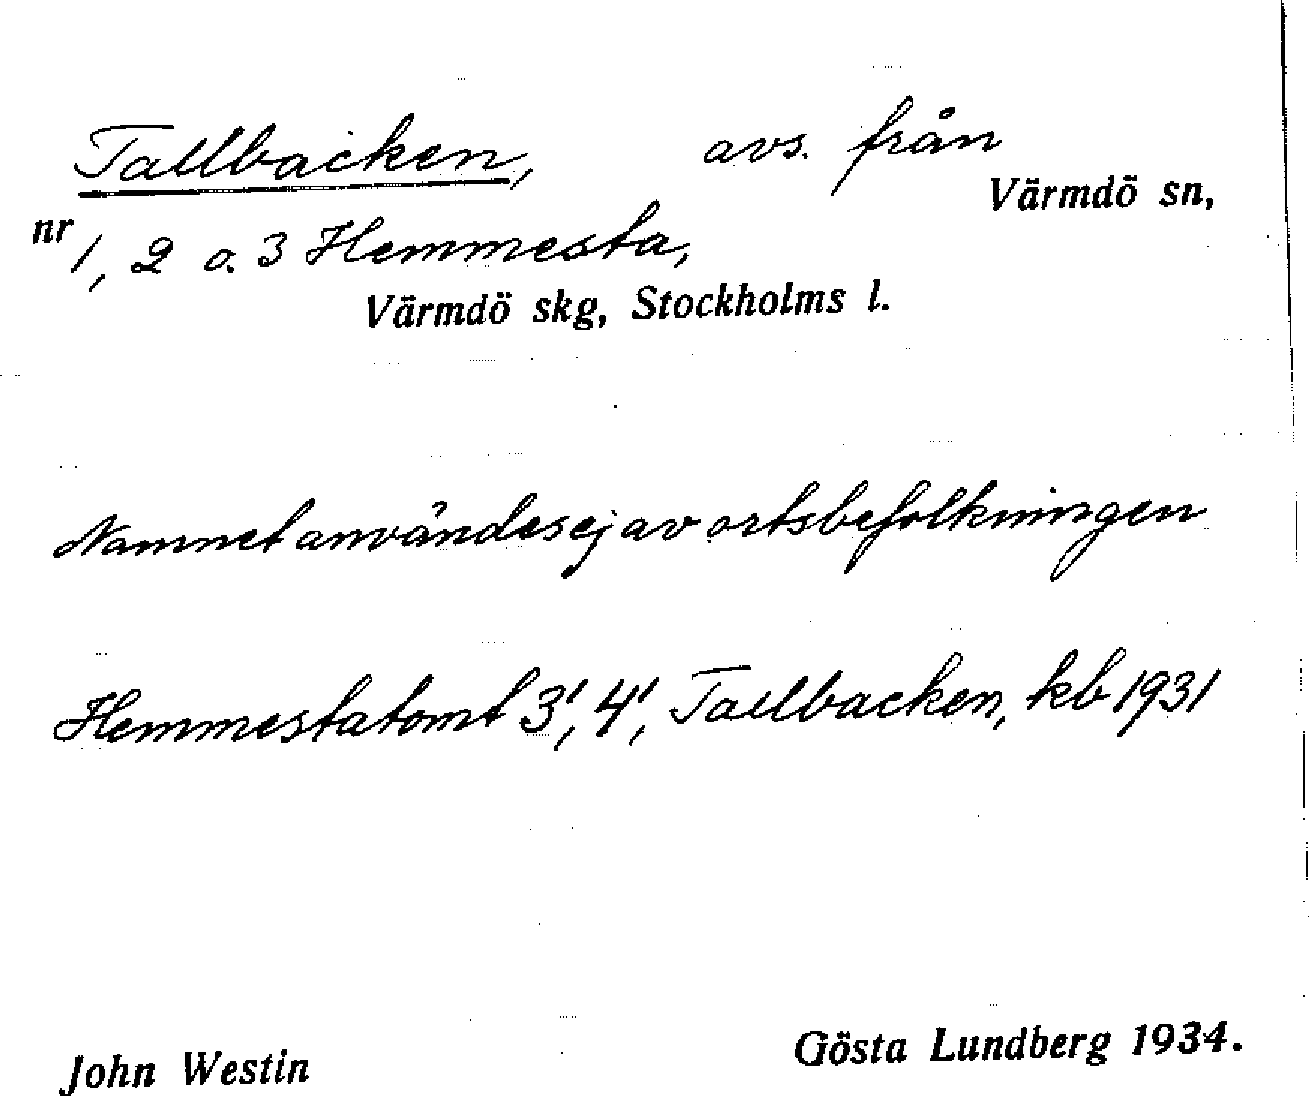 Tallbacken, avs. från
Värmdö sn,
nr 1, 2 o. 3 Hemmesta,
Värmdö skg, Stockholms l.
Namnet användes ej av ortsbefolkningen
Hemmestatomt 3¹, 4¹, Tallbacken, kb 1931
John Westin Gösta Lundberg 1934.